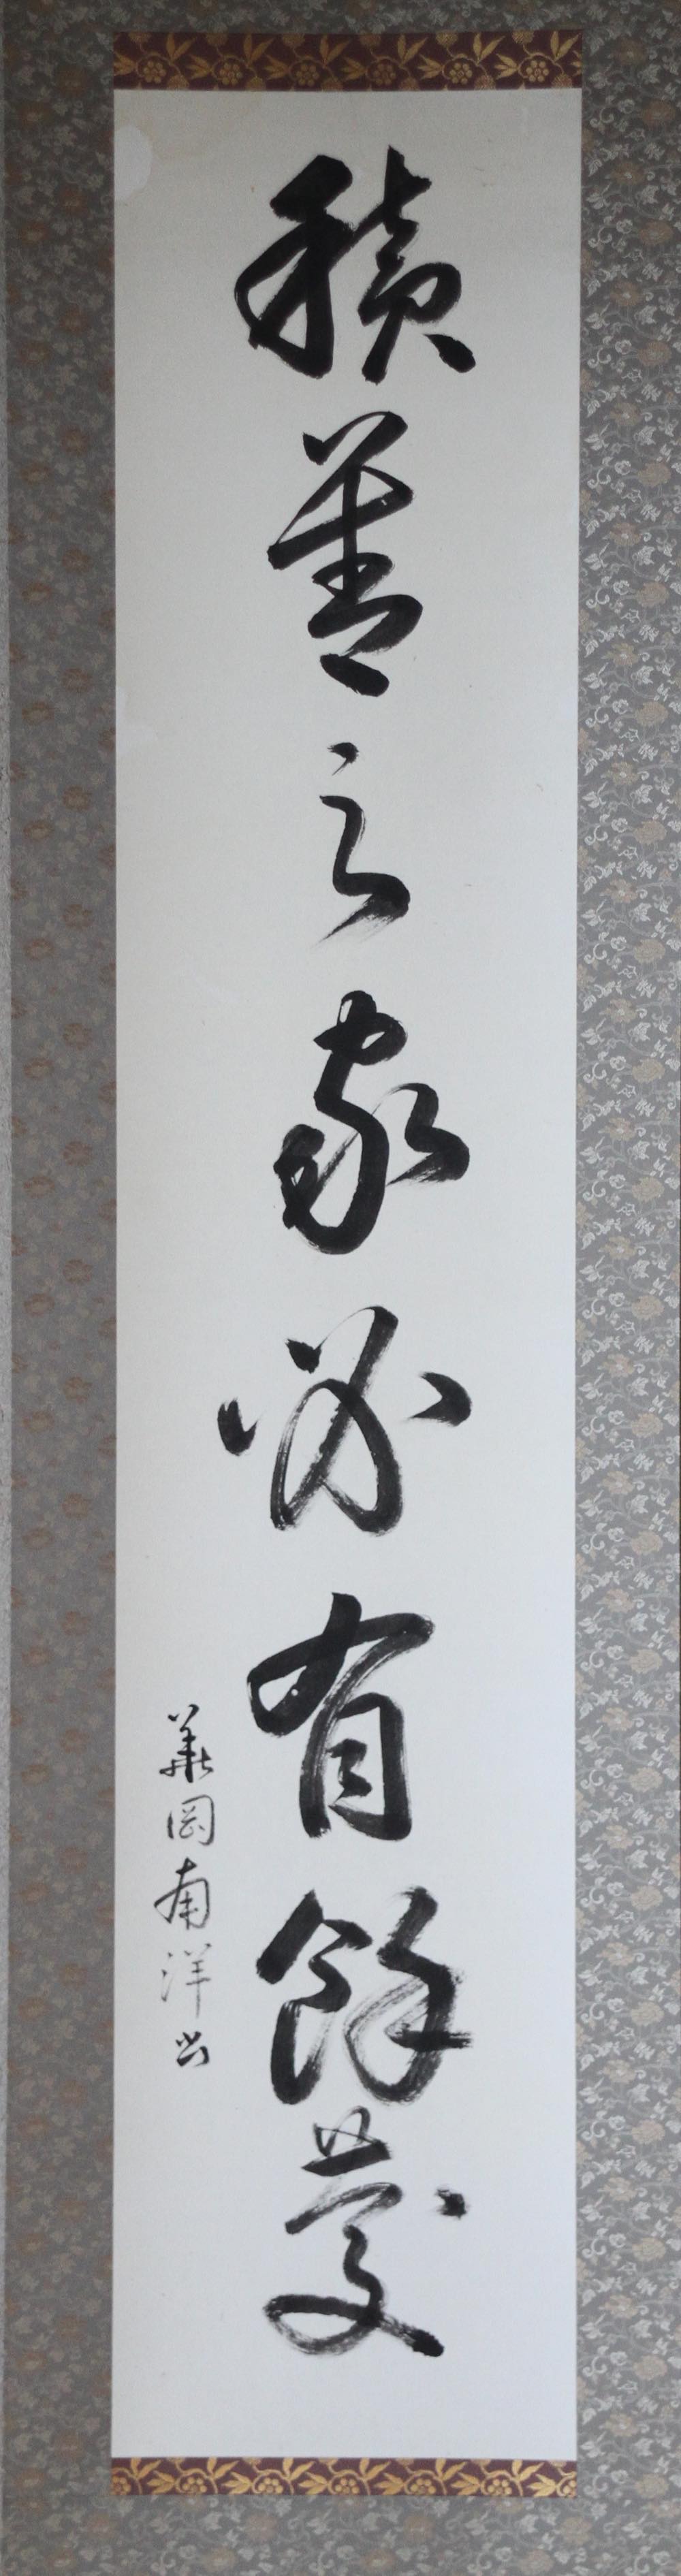 積善之家必有餘慶
華岡南洋書